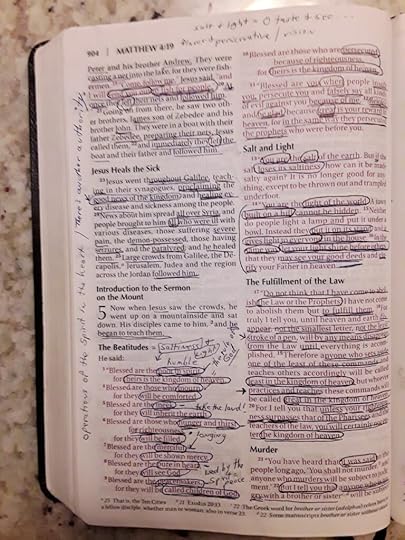 salt & light = taste & see ...
904 | MATTHEW 4:19
Peter and his brother Andrew. They were
casting a net into the lake, for they were fisher-
Jesus said,
once they left their nets and followed him.
Going on from there, he saw two oth-
er brothers, James son of Zebedee and his
brother John. They were in a boat with their
father Zebedee, preparing their nets. Jesus
called them, 22 and immediately they left the
boat and their father and followed him.
Jesus Heals the Sick
23 Jesus went throughout Galilee, teach-
ing in their synagogues, proclaiming the
good news of the kingdom, and healing ev-
ery disease and sickness among the people.
24 News about him spread all over Syria, and
people brought to him all who were ill with
various diseases, those suffering severe
pain, the demon-possessed, those having
seizures, and the paralyzed; and he healed
them. 25 Large crowds from Galilee, the De-
capolis, Jerusalem, Judea and the region
across the Jordan followed him.
Introduction to the Sermon
on the Mount
5 Now when Jesus saw the crowds, he
went up on a mountainside and sat
down. His disciples came to him, 2 and he
began to teach them.
The Beatitudes
He said:
humble
3 "Blessed are the poor in spirit,
for theirs is the kingdom of heaven.
4 Blessed are those who mourn,
for they will be comforted.
5 Blessed are the meek,
take the land!
for they will inherit the earth.
6 Blessed are those who hunger and thirst
for righteousness,
for they will be filled.
longing
7 Blessed are the merciful,
for they will be shown mercy.
8 Blessed are the pure in heart,
for they will see God.
9 Blessed are the peacemakers,
for they will be called children of God.
operations of the Spirit in the heart
10 Blessed are those who are persecuted
because of righteousness,
for theirs is the kingdom of heaven.
11 "Blessed are you when people insult
you, persecute you and falsely say all kinds
of evil against you because of me.
because great is your reward in
heaven, for in the same way they persecuted
the prophets who were before you.
Salt and Light
13 "You are the salt of the earth. But if the
salt loses its saltiness, how can it be made
salty again? It is no longer good for any-
thing, except to be thrown out and trampled
underfoot.
14 "You are the light of the world. A town
built on a hill cannot be hidden. 15 Neither do
people light a lamp and put it under a
bowl. Instead they put it on its stand, and it
gives light to everyone in the house.
way, let your light shine before others,
that they may see your good deeds and glo-
rify your Father in heaven.
The Fulfillment of the Law
17 "Do not think that I have come to abol-
ish the Law or the Prophets; I have not come
to abolish them but to fulfill them. 18 For
truly I tell you, until heaven and earth dis-
appear, not the smallest letter, not the least
stroke of a pen, will by any means disappear
from the Law until everything is accom-
plished. 19 Therefore anyone who sets aside
one of the least of these commands and
teaches others accordingly will be called
least in the kingdom of heaven, but whoever
practices and teaches these commands will
be called great in the kingdom of heaven.
20 For I tell you that unless your righteous-
ness surpasses that of the Pharisees and the
teachers of the law, you will certainly not en-
ter the kingdom of heaven.
Murder
21 "You have heard that it was said to the
people long ago, 'You shall not murder, and
anyone who murders will be subject to judg-
ment.' 22 But I tell you that anyone who is an-
gry with a brother or sister will be
25 That is, the Ten Cities
21 Exodus 20:13
22 The Greek word for brother or sister (adelphos) refers here to
a fellow disciple, whether man or woman; also in verse 23.
22 Some manuscripts brother or sister without